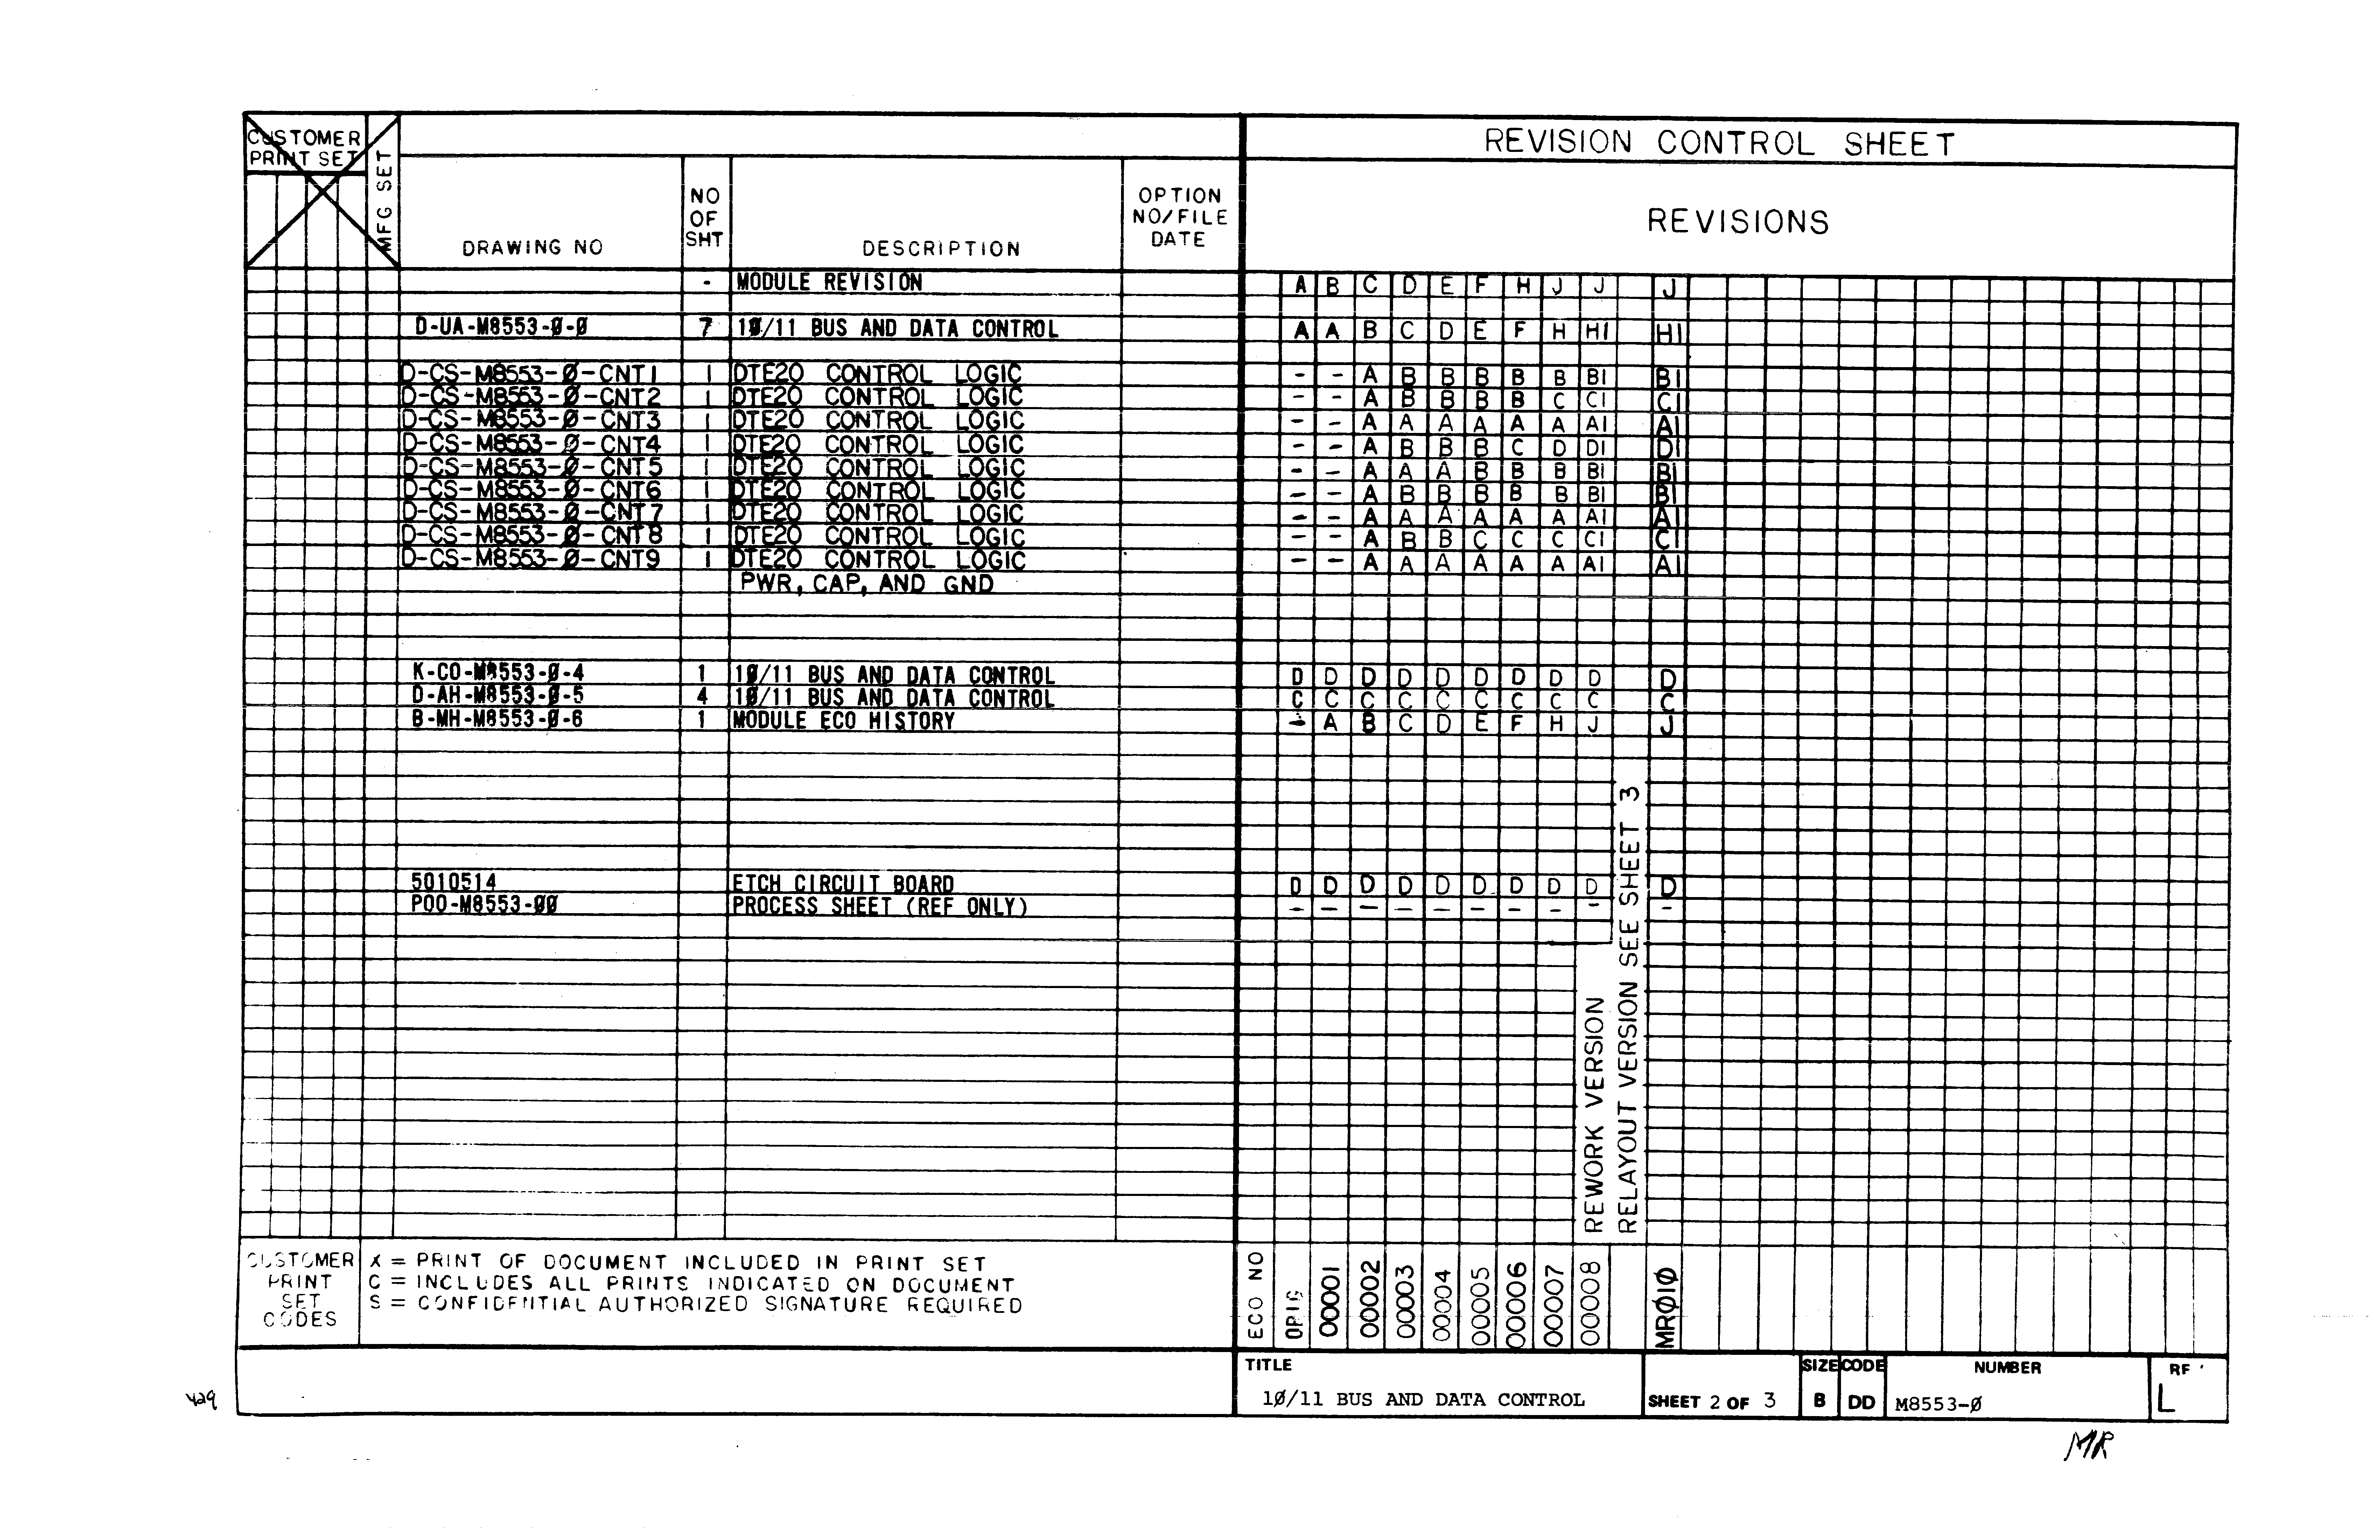 CUSTOMER
PRINT SET
MFG SET
DRAWING NO
NO
OF
SHT
DESCRIPTION
OPTION
NO/FILE
DATE
REVISION CONTROL SHEET
REVISIONS
- MODULE REVISION A B C D E F H J J J
D-UA-M8553-0-0 7 10/11 BUS AND DATA CONTROL A A B C D E F H H1 H1
D-CS-M8553-Ø-CNT1 1 DTE20 CONTROL LOGIC - - A B B B B B B1 B1
D-CS-M8553-Ø-CNT2 1 DTE20 CONTROL LOGIC - - A B B B B C C1 C1
D-CS-M8553-Ø-CNT3 1 DTE20 CONTROL LOGIC - - A A A A A A A1 A1
D-CS-M8553-Ø-CNT4 1 DTE20 CONTROL LOGIC - - A B B B C D D1 D1
D-CS-M8553-Ø-CNT5 1 DTE20 CONTROL LOGIC - - A A A B B B B1 B1
D-CS-M8553-Ø-CNT6 1 DTE20 CONTROL LOGIC - - A B B B B B B1 B1
D-CS-M8553-Ø-CNT7 1 DTE20 CONTROL LOGIC - - A A A A A A A1 A1
D-CS-M8553-Ø-CNT8 1 DTE20 CONTROL LOGIC - - A B B C C C C1 C1
D-CS-M8553-Ø-CNT9 1 DTE20 CONTROL LOGIC - - A A A A A A A1 A1
PWR, CAP, AND GND
K-CO-M8553-Ø-4 1 1Ø/11 BUS AND DATA CONTROL D D D D D D D D D D
D-AH-M8553-Ø-5 4 1Ø/11 BUS AND DATA CONTROL C C C C C C C C C C
B-MH-M8553-Ø-6 1 MODULE ECO HISTORY - A B C D E F H J J
5010514 ETCH CIRCUIT BOARD D D D D D D D D D D
P00-M8553-ØØ PROCESS SHEET (REF ONLY) - - - - - - - - - -
REWORK VERSION
RELAYOUT VERSION SEE SHEET 3
CUSTOMER
PRINT
SET
CODES
X = PRINT OF DOCUMENT INCLUDED IN PRINT SET
C = INCLUDES ALL PRINTS INDICATED ON DOCUMENT
S = CONFIDENTIAL AUTHORIZED SIGNATURE REQUIRED
ECO NO ORIG 00001 00002 00003 00004 00005 00006 00007 00008 MRØ1Ø
TITLE
1Ø/11 BUS AND DATA CONTROL
SHEET 2 OF 3
SIZE
B
CODE
DD
NUMBER
M8553-Ø
L
MR